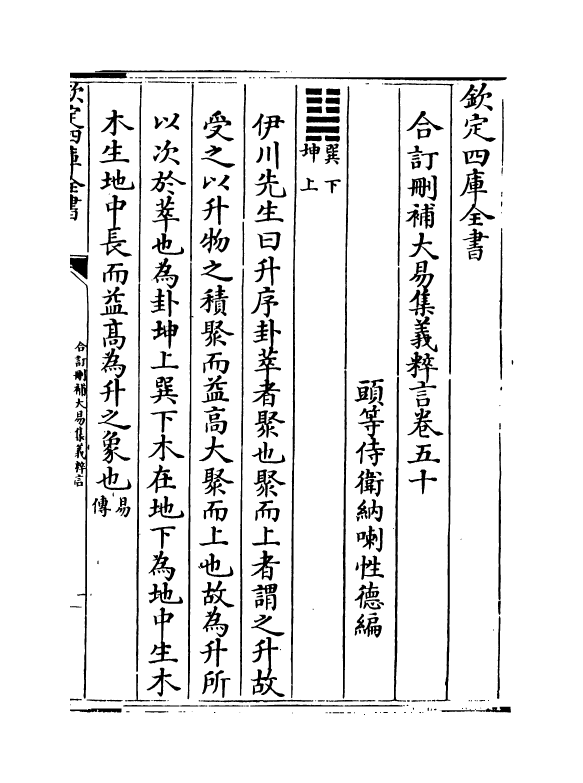 欽定四庫全書
合訂刪補大易集義粹言卷五十
頭等侍衛納喇性德編
䷭
巽下
坤上
伊川先生曰升序卦萃者聚也聚而上者謂之升故
受之以升物之積聚而益高大聚而上也故為升所
以次於萃也為卦坤上巽下木在地下為地中生木
木生地中長而益高為升之象也易
傳
欽定四庫全書
合訂刪補大易集義粹言
一